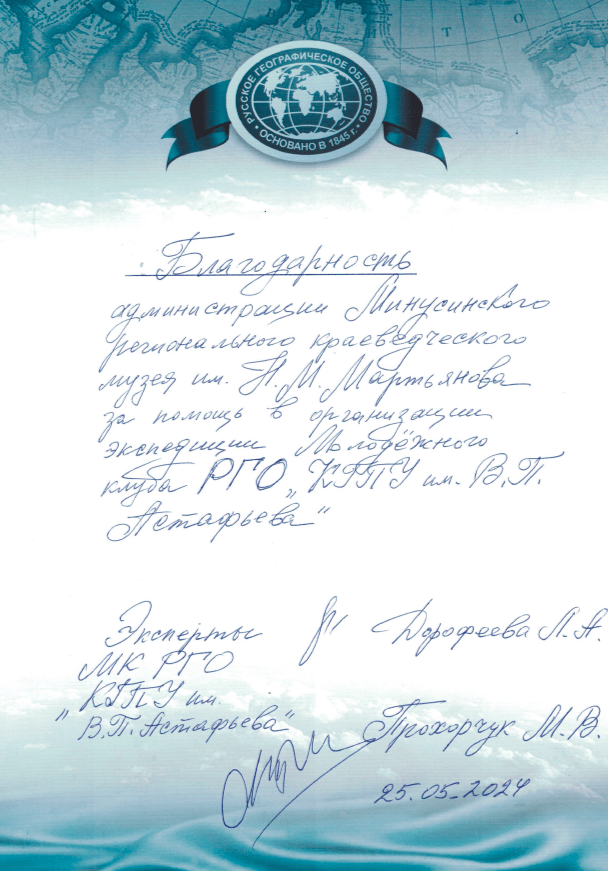 РУССКОЕ ГЕОГРАФИЧЕСКОЕ ОБЩЕСТВО
• ОСНОВАНО В 1845 г. •
Благодарность
администрации Минусинского
регионального краеведческого
музея им. Н.М. Мартьянова
за помощь в организации
экспедиции Молодёжного
клуба РГО „КГПУ им. В.П.
Астафьева"
Эксперты Дорофеева Л.А.
МК РГО
„КГПУ им.
В.П. Астафьева"
Прохорчук М.В.
25.05.2024